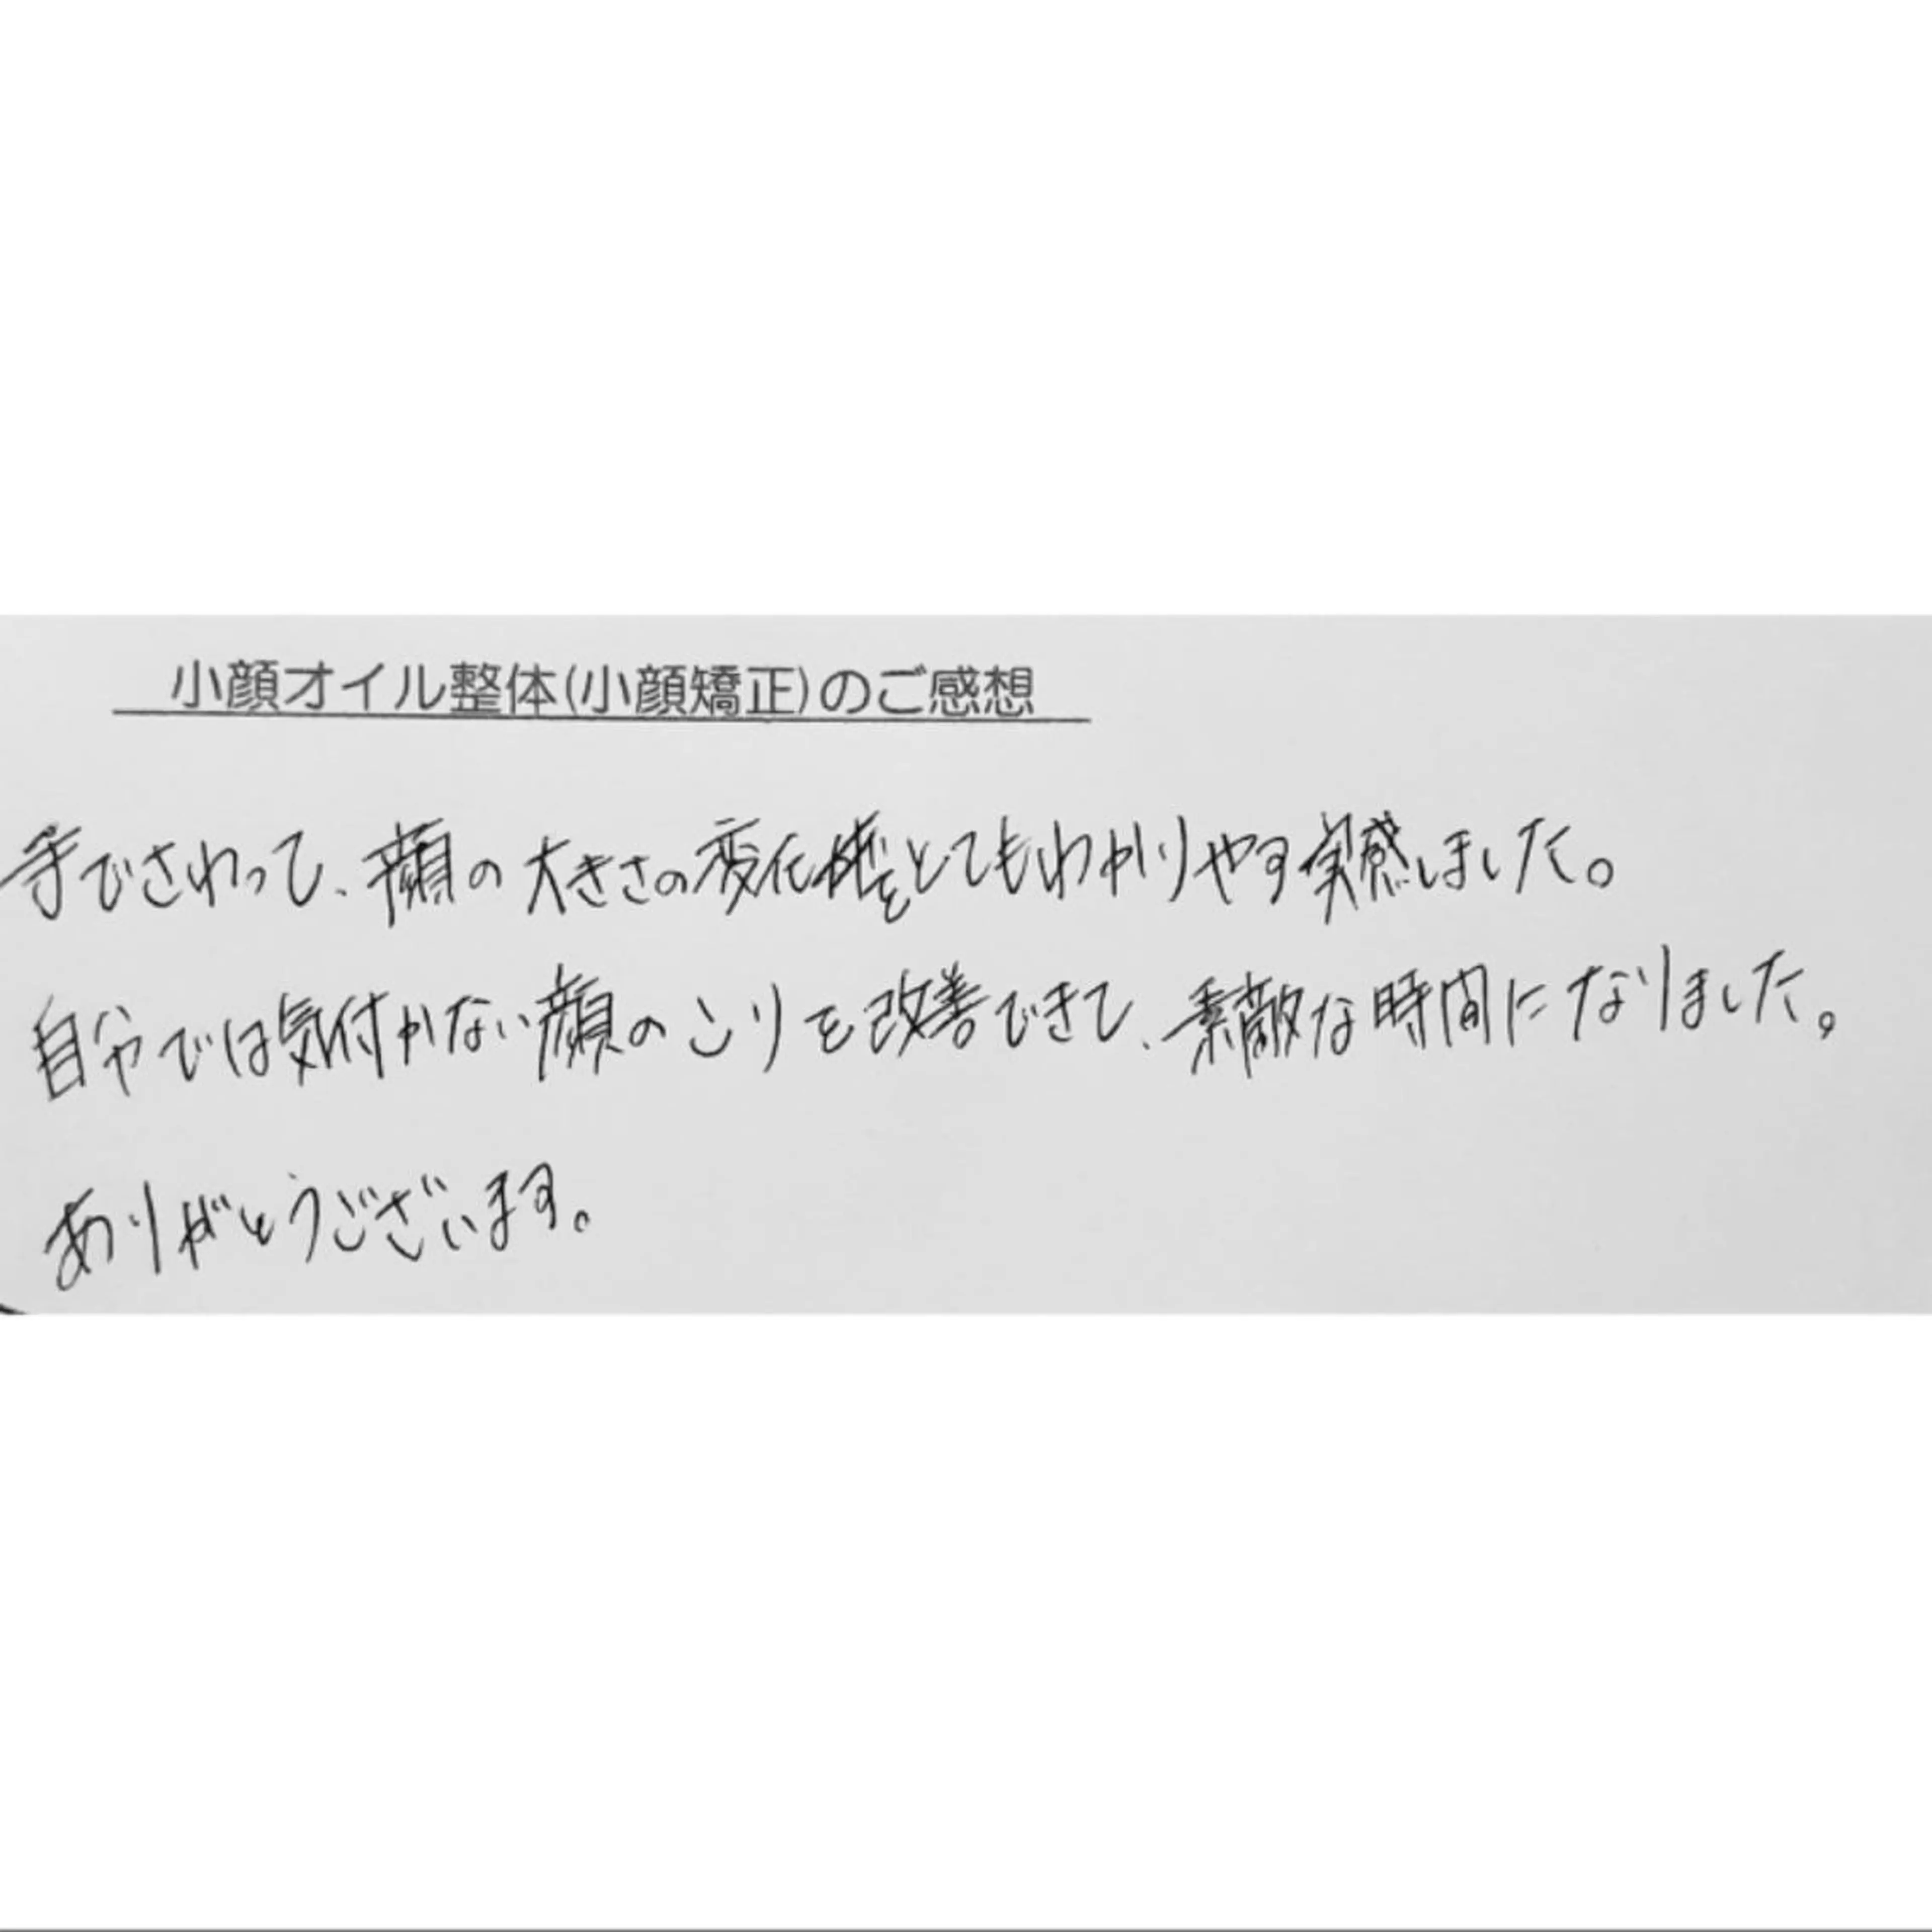 小顔オイル整体(小顔矯正)のご感想
手でさわって、顔の大きさの変化をとてもわかりやす実感しました。
自分では気付かない顔のこりを改善できて、素敵な時間になりました。
ありがとうございます。